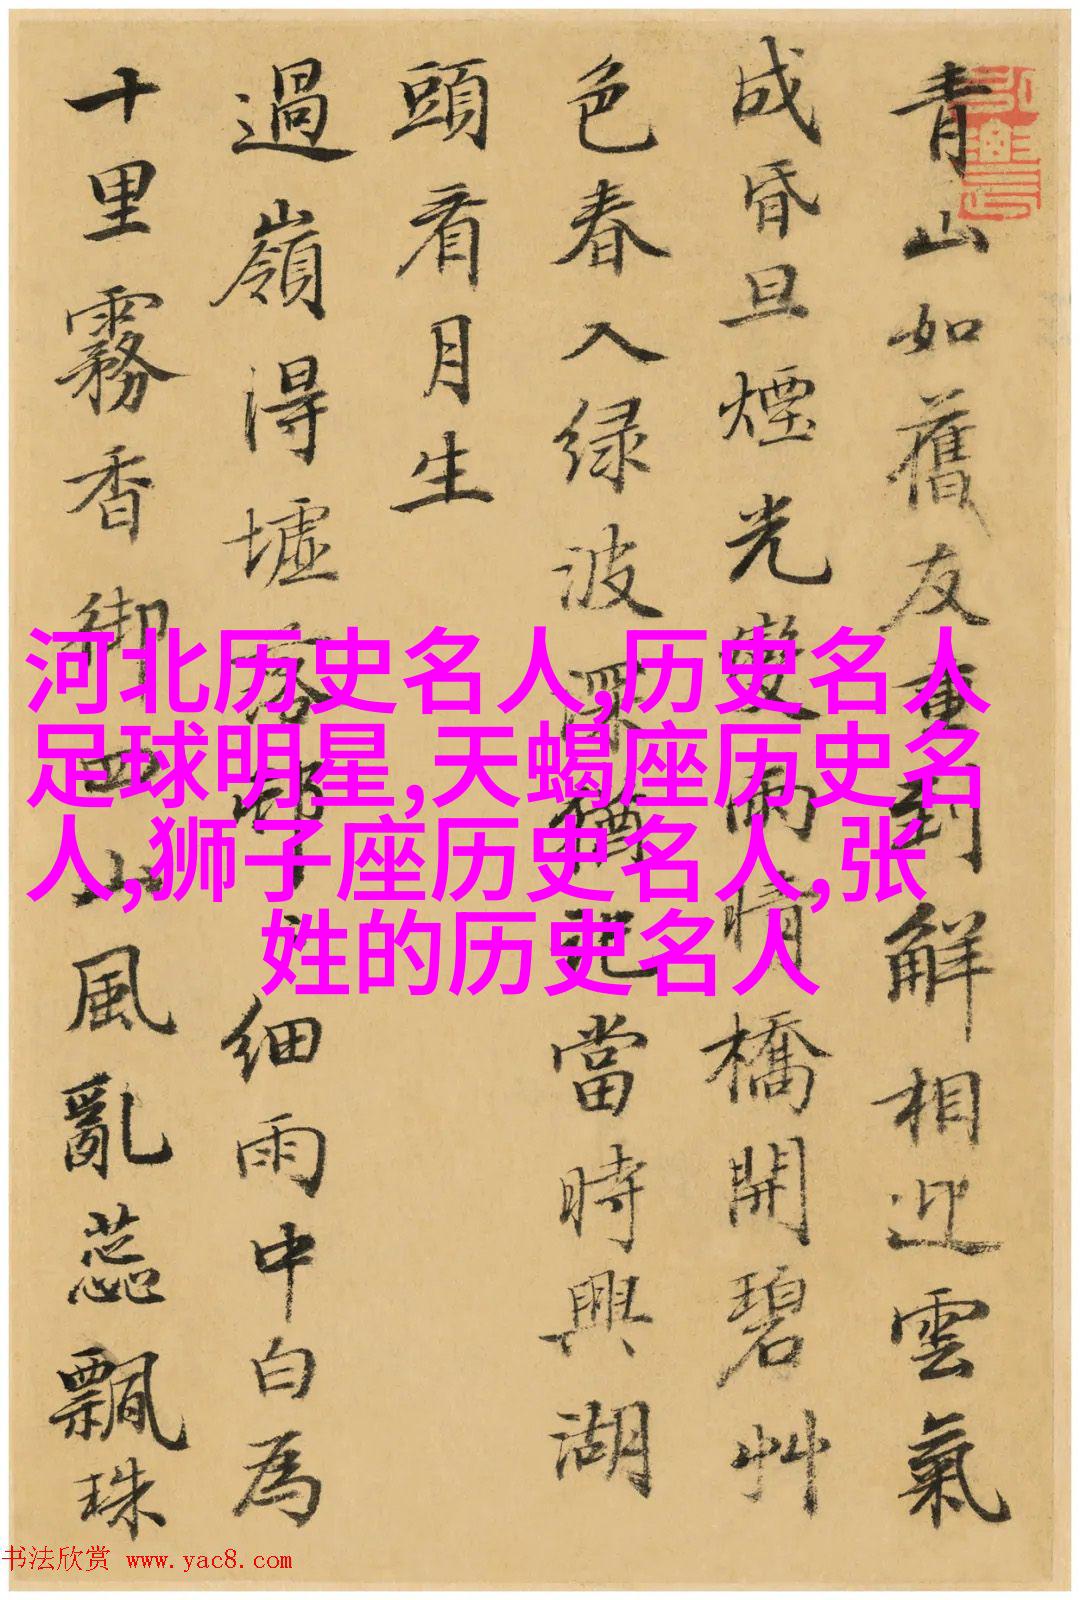 青山如舊友重到解相迎雲氣
成昏旦煙光變雨晴橋開碧艸
色春入绿波深猶記當時興湖
頭看月生
過嶺得墟落邨細雨中白為
十里霧香御四山風亂蕊飄珠
河北历史名人,历史名人
足球明星,天蝎座历史名
人,狮子座历史名人,张
姓的历史名人
书法欣赏 www.yac8.com